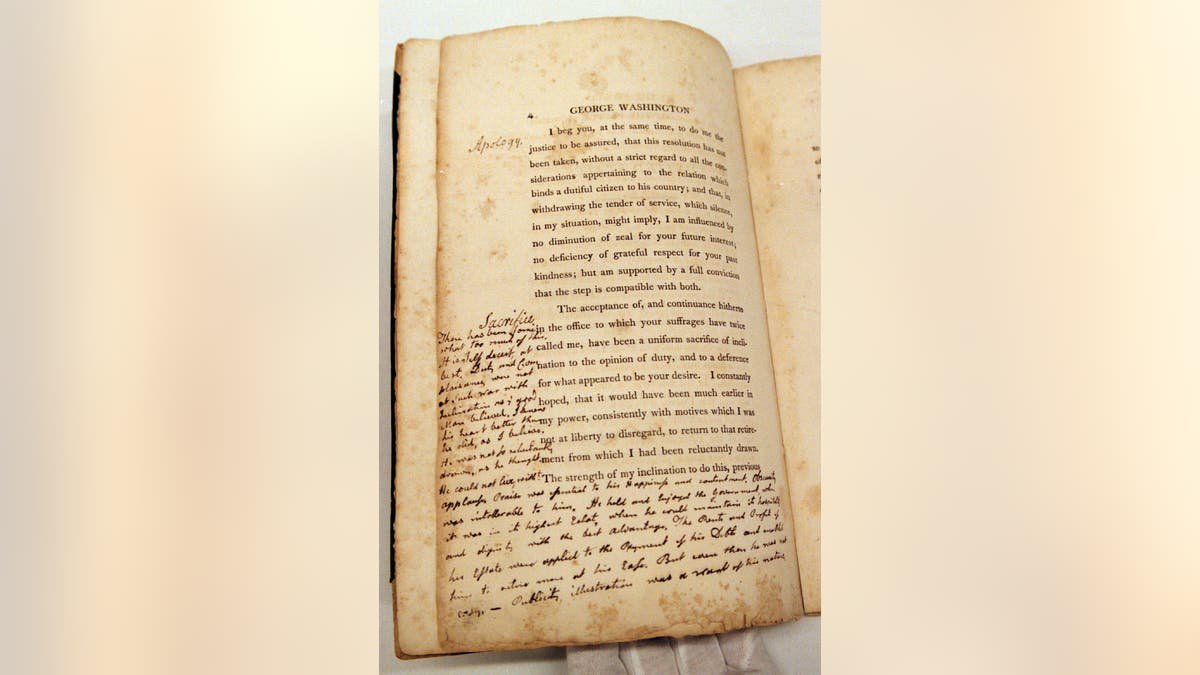 4.
GEORGE WASHINGTON
Apology.
I beg you, at the same time, to do me the
justice to be assured, that this resolution has not
been taken, without a strict regard to all the con-
siderations appertaining to the relation which
binds a dutiful citizen to his country; and that, in
withdrawing the tender of service, which silence,
in my situation, might imply, I am influenced by
no diminution of zeal for your future interest;
no deficiency of grateful respect for your past
kindness; but am supported by a full conviction
that the step is compatible with both.
The acceptance of, and continuance hitherto
in the office to which your suffrages have twice
called me, have been a uniform sacrifice of incli-
nation to the opinion of duty, and to a deference
for what appeared to be your desire. I constantly
hoped, that it would have been much earlier in
my power, consistently with motives which I was
not at liberty to disregard, to return to that retire-
ment from which I had been reluctantly drawn.
The strength of my inclination to do this, previous
Sacrifice
There has been some
what too much of this.
It is self deceit, at
best. Duty and Com
plaisance, were not
at such war with
Inclination as
Man believed. I knew
his heart better than
he did, as I believe.
It was not so reluctantly
drawn, as he thought.
He could not live, with
applause. Praise was essential to his Happiness and contentment. Obscurity
was intollerable to him. He held and enjoyed the Government when
it was in it highest Eclat, when he could maintain it
and dignity with the best Advantage. The Rents and Profit of
his Estate were applied to the Payment of his Debts and
him to retire more at his Ease. But even then he was not
easy. — Publicity, illustration was a want of his nature